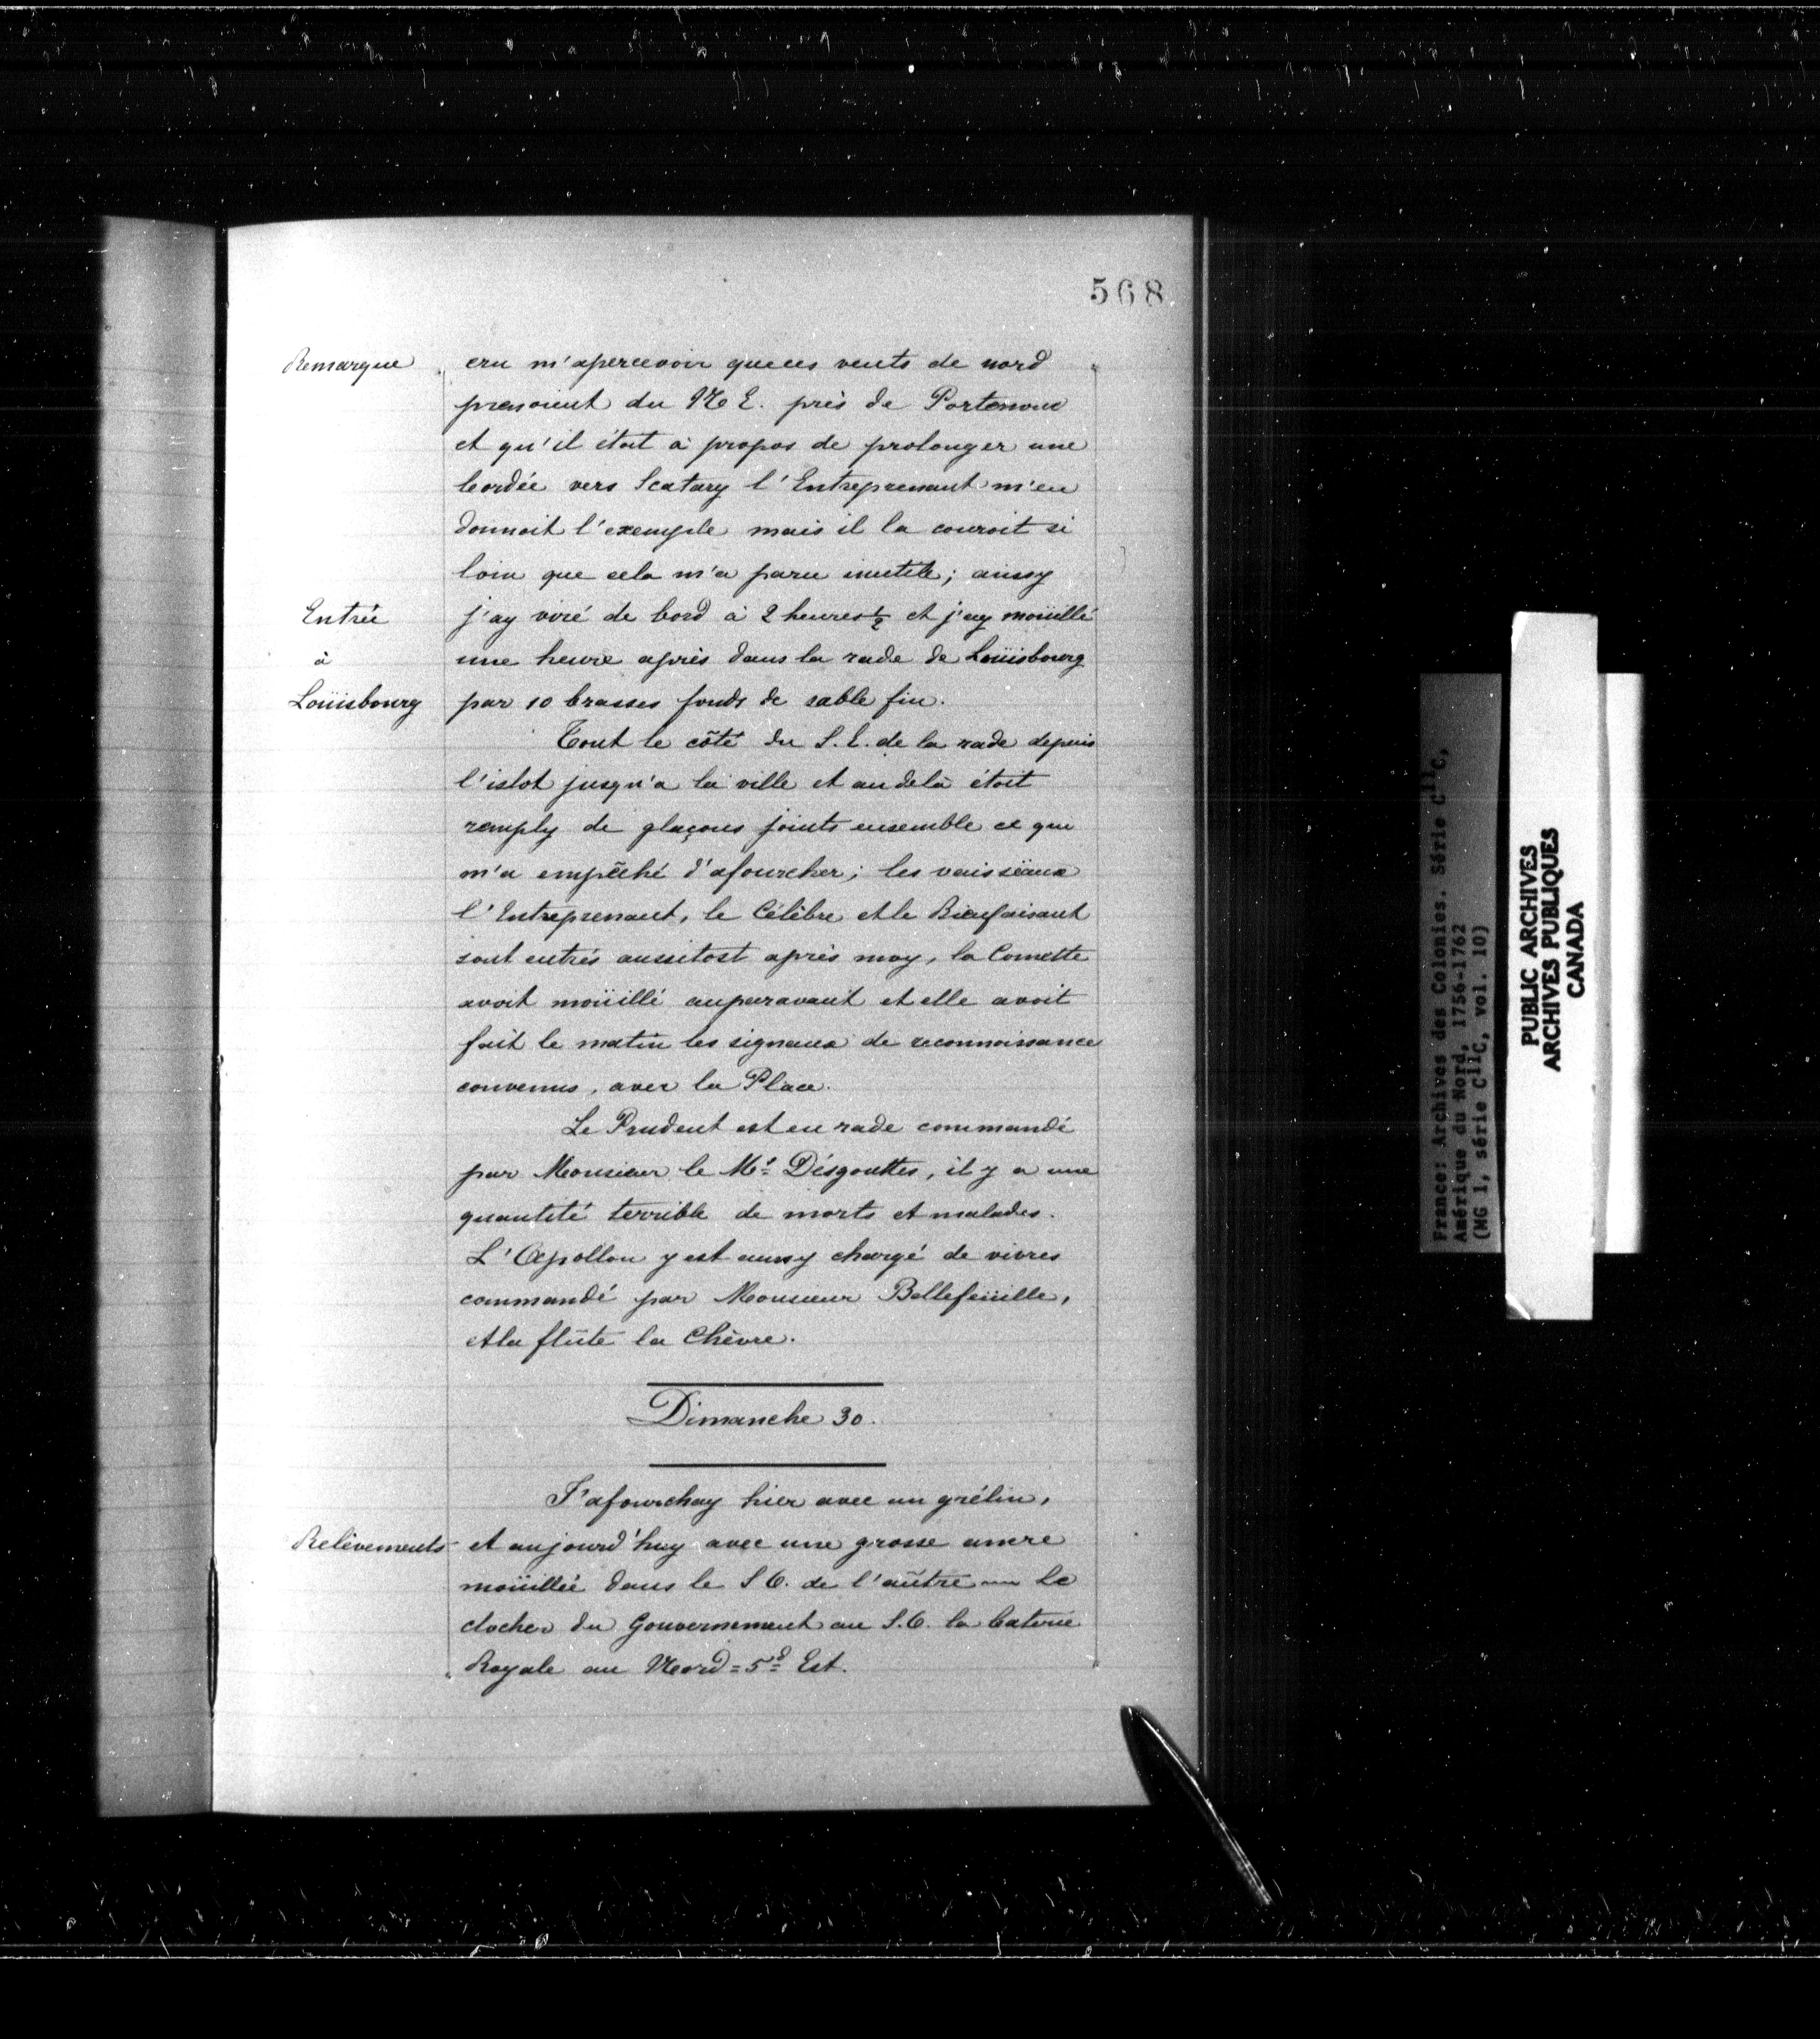 568
Remarque
cru m'apercevoir que ces vents de nord
prenoient du N E. près de Portenoue
et qu'il étoit à propos de prolonger une
bordée vers Scatary l'Entreprenant m'en
donnoit l'exemple mais il la couroit si
loin que cela m'a paru inutile; aussy
Entrée
à
Louïsbourg
j'ay viré de bord à 2 heures ½ et j'ay mouïllé
une heure après dans la rade de Louïsbourg
par 10 brasses fonds de sable fin.
Tout le côté du S.E. de la rade depuis
l'islot jusqu'a la ville et au delà étoit
remply de glaçons joints ensemble ce qui
m'a empêché d'afourcher; les vaisseaux
l'Entreprenant, le Célèbre et le Bienfaisant
sont entrés aussitost après moy, la Comette
avoit mouïllé auparavant et elle avoit
fait le matin les signaux de reconnoissance
convenus, avec la Place.
Le Prudent est en rade commandé
par Monsieur le Mis Désgouttes, il y a une
quantité terrible de morts et malades.
L'Apollon y est aussy chargé de vivres
commandé par Monsieur Bellefeüille,
et la flûte la Chèvre.
Dimanche 30.
J'afourchay hier avec un grélin,
Relèvements
et aujourd'huy avec une grosse ancre
mouïllée dans le S O. de l'aûtre — Le
clocher du Gouvernement au S.O. la baterie
Royale au Nord = 5d Est.
France: Archives des Colonies. Série C11C,
Amérique du Nord, 1756-1762
(MG 1, série C11C, vol. 10)
PUBLIC ARCHIVES
ARCHIVES PUBLIQUES
CANADA